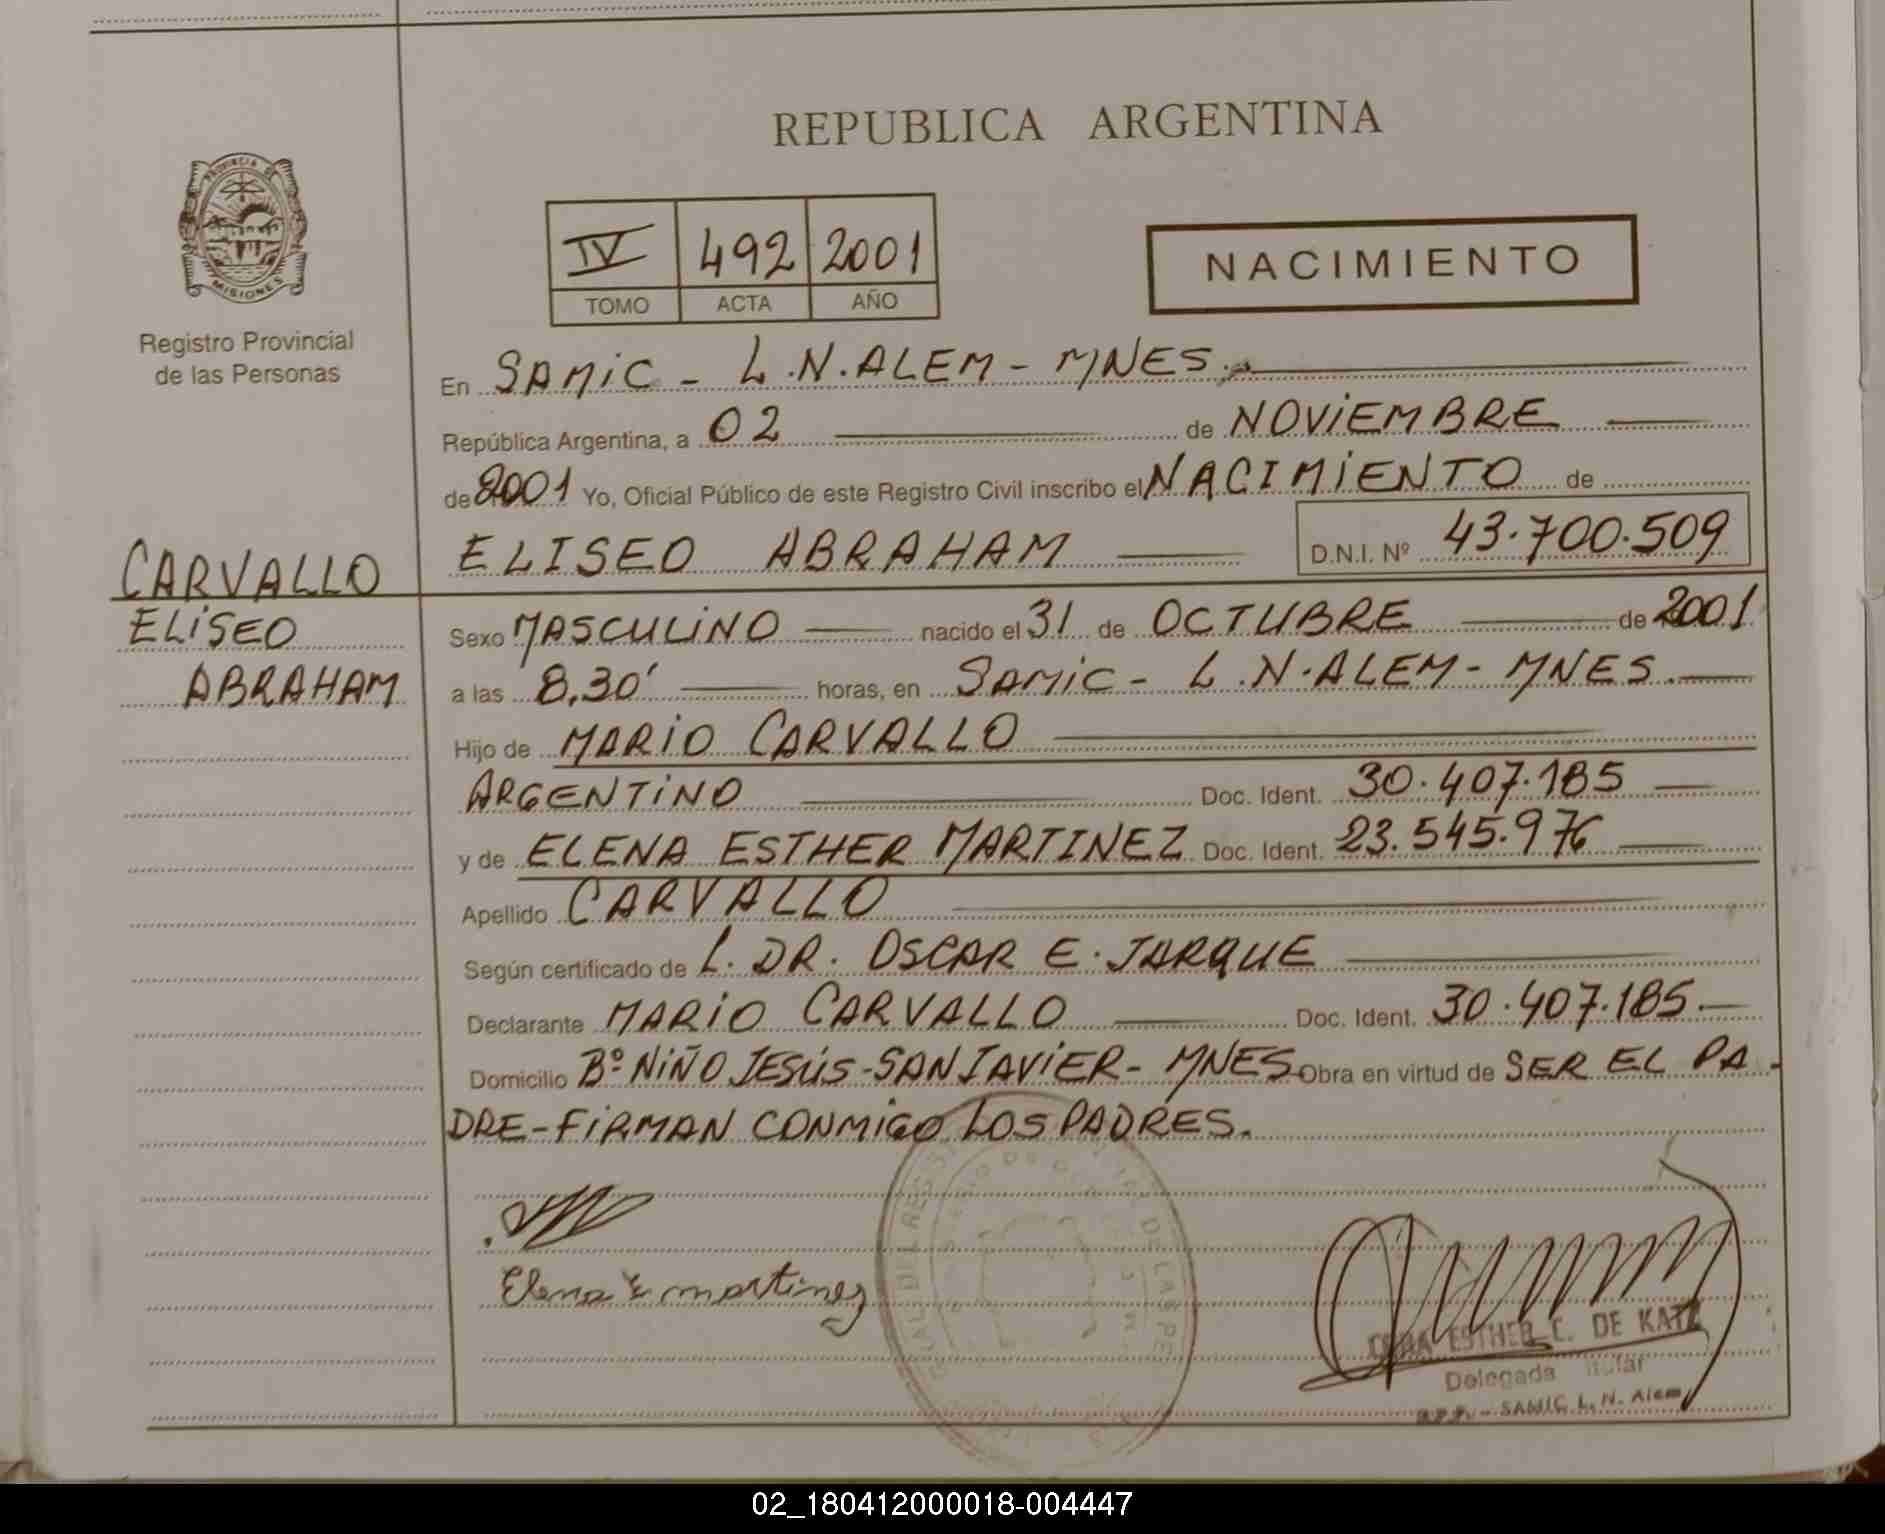 REPUBLICA ARGENTINA
PROVINCIA DE
MISIONES
Registro Provincial
de las Personas
IV 492 2001
TOMO ACTA AÑO
NACIMIENTO
En SAMiC - L.N.ALEM - MNES.
República Argentina, a 02 de NOViEMBRE
de 2001 Yo, Oficial Público de este Registro Civil inscribo el NACIMIENTO de
ELISEO ABRAHAM D.N.I. Nº 43.700.509
CARVALLO
ELiSEO
ABRAHAM
Sexo MASCULiNO nacido el 31 de OCTUBRE de 2001
a las 8,30' horas, en SAMiC - L.N.ALEM - MNES.
Hijo de MARiO CARVALLO
ARGENTiNO Doc. Ident. 30.407.185
y de ELENA ESTHER MARTINEZ Doc. Ident. 23.545.976
Apellido CARVALLO
Según certificado de L. DR. OSCAR E. JARQUE
Declarante MARiO CARVALLO Doc. Ident. 30.407.185.-
Domicilio Bº NiÑO JESÚS - SAN JAViER - MNES Obra en virtud de SER EL PA-
DRE - FiRMAN CONMiGO LOS PADRES.
Elena E martinez
ESTHER C. DE KATZ
Delegada Titular
SAMIC L. N. Alem
02_180412000018-004447